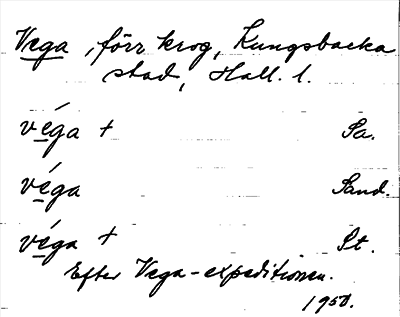 Vega, förr krog, Kungsbacka
stad, Hall. l.
véga + Sa.
véga Sand.
véga + St.
Efter Vega-expeditionen.
1950.